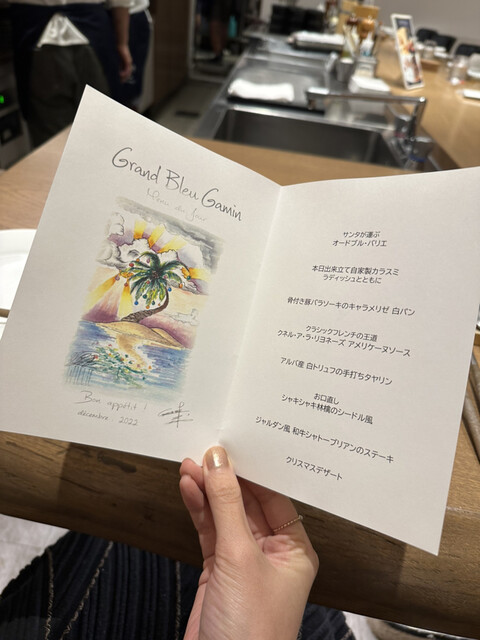 Grand Bleu Gamin
Menu du jour
Bon appétit !
décembre 2022
サンタが運ぶ
オードブル・バリエ
本日出来立て自家製カラスミ
ラディッシュとともに
骨付き豚バラソーキのキャラメリゼ 白パン
クラシックフレンチの王道
クネル・ア・ラ・リヨネーズ アメリケーヌソース
アルバ産 白トリュフの手打ちタヤリン
お口直し
シャキシャキ林檎のシードル風
ジャルダン風 和牛シャトーブリアンのステーキ
クリスマスデザート